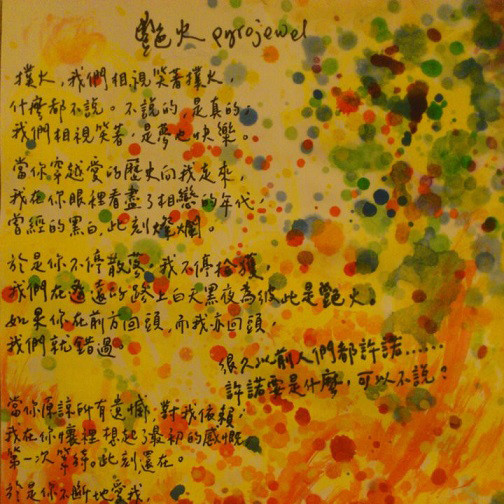 艷火 pyrojewel
撲火，我們相視笑著撲火，
什麼都不說。不說的，是真的，
我們相視笑著，是夢也快樂。
當你穿越愛的歷史向我走來，
我在你眼裡看盡了相戀的年代，
曾經的黑白，此刻燦爛。
於是你不停散落，我不停拾獲，
我們在遙遠的路上白天黑夜為彼此是艷火。
如果你在前方回頭，而我亦回頭，
我們就錯過。
很久以前人們都許諾......
許諾要是什麼，可以不說？
當你原諒所有遺憾，對我依賴，
我在你懷裡想起了最初的感慨
第一次等待。此刻還在。
於是你不斷地愛我，